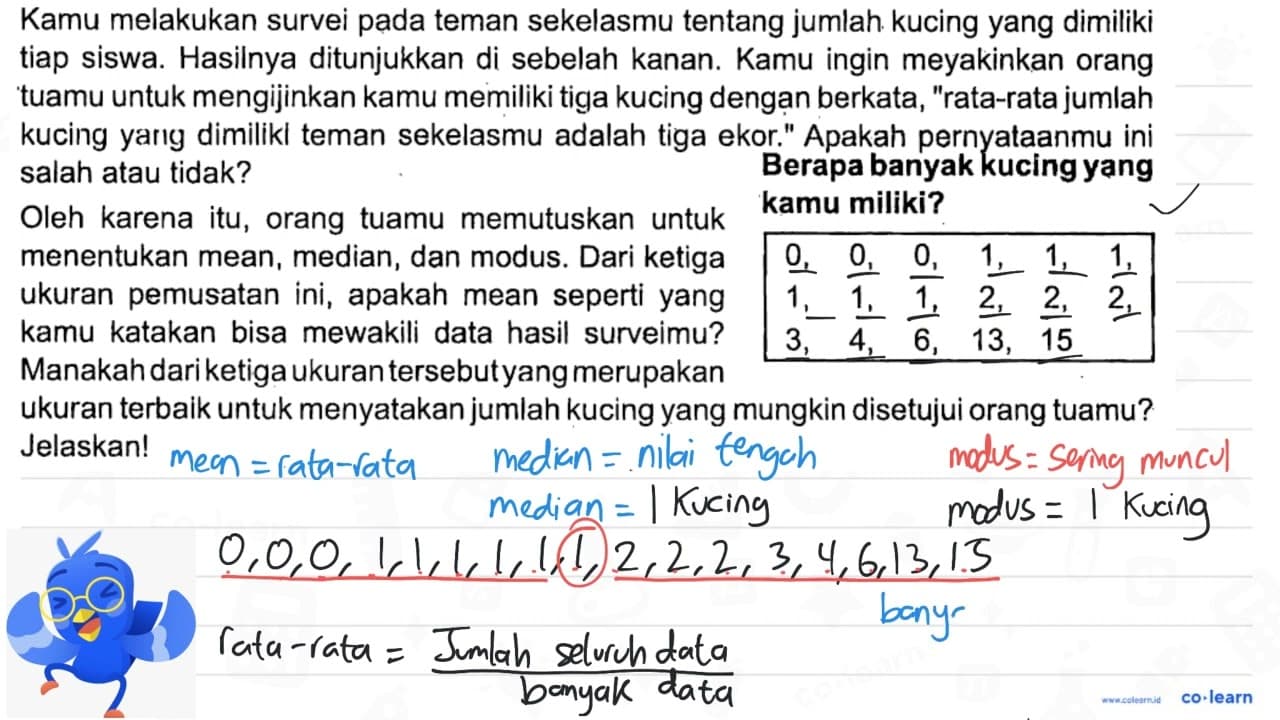 Kamu melakukan survei pada teman sekelasmu tentang jumlah kucing yang dimiliki
tiap siswa. Hasilnya ditunjukkan di sebelah kanan. Kamu ingin meyakinkan orang
tuamu untuk mengijinkan kamu memiliki tiga kucing dengan berkata, "rata-rata jumlah
kucing yang dimiliki teman sekelasmu adalah tiga ekor." Apakah pernyataanmu ini
salah atau tidak?
Berapa banyak kucing yang
kamu miliki?
0, 0, 0, 1, 1, 1,
1, 1, 1, 2, 2, 2,
3, 4, 6, 13, 15
Oleh karena itu, orang tuamu memutuskan untuk
menentukan mean, median, dan modus. Dari ketiga
ukuran pemusatan ini, apakah mean seperti yang
kamu katakan bisa mewakili data hasil surveimu?
Manakah dari ketiga ukuran tersebut yang merupakan
ukuran terbaik untuk menyatakan jumlah kucing yang mungkin disetujui orang tuamu?
Jelaskan!
mean = rata-rata
median = nilai tengah
modus = sering muncul
median = 1 Kucing
modus = 1 Kucing
0, 0, 0, 1, 1, 1, 1, 1, 1, 2, 2, 2, 3, 4, 6, 13, 15
bany
rata-rata = Jumlah seluruh data
banyak data
www.colearn.id
co·learn